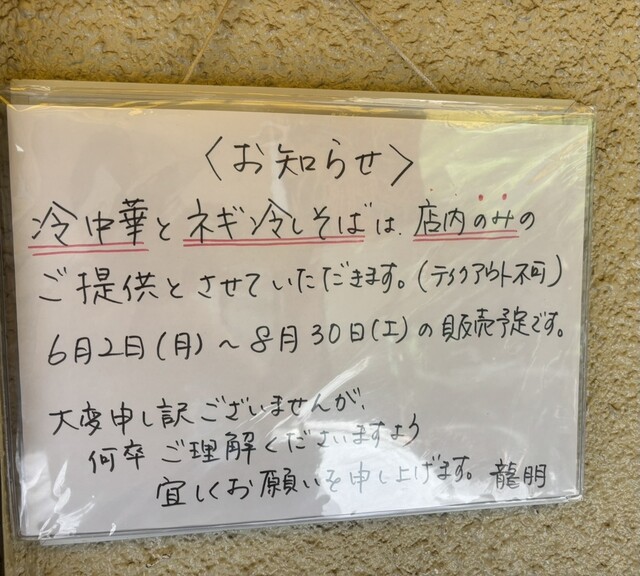 〈お知らせ〉
冷中華とネギ冷しそばは、店内のみの
ご提供とさせていただきます。(テイクアウト不可)
6月2日(月)~8月30日(土)の販売予定です。
大変申し訳ございませんが、
何卒ご理解くださいますよう
宜しくお願いを申し上げます。龍朋